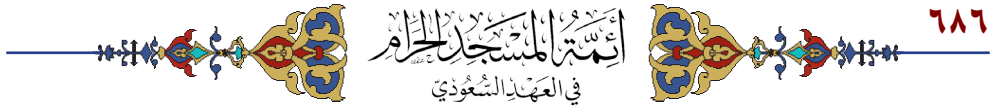 ٦٨٦
أَئِمَّةُ المَسْجِدِ الحَرَامِ
فِي العَهْدِ السُّعُودِيِّ